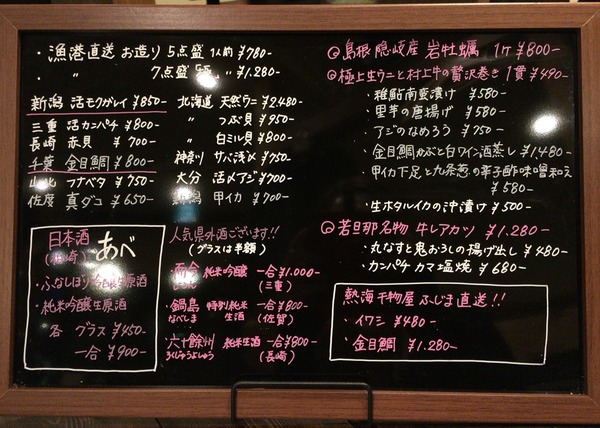 ・漁港直送 お造り 5点盛 1人前 ¥780-
・ 〃 7点盛 〃 ¥1.280-
新潟 活モクガレイ ¥850-
三重 活カンパチ ¥800-
長崎 赤貝 ¥700-
千葉 金目鯛 ¥800-
山北 ワナベタ ¥750-
佐度 真ダコ ¥650-
北海道 天然ウニ ¥2.480-
〃 つぶ貝 ¥950-
〃 白ミル貝 ¥800-
神奈川 サバ浅〆 ¥750-
大分 活〆アジ ¥700-
甲イカ ¥700-
日本酒
あべ
・ふなしぼり吟醸生原酒
・純米吟醸生原酒
各 グラス ¥450-
一合 ¥900-
人気県外酒ございます!!
(グラスは半額)
・而今 純米吟醸 一合¥1.000-
(三重)
・鍋島 特別純米生酒 一合¥800-
なべしま (佐賀)
・六十餘州 純米生酒 一合¥800-
ろくじゅうよしゅう (長崎)
◎島根 隠岐産 岩牡蠣 1ケ ¥800-
◎極上生ウニと村上牛の贅沢巻き 1貫 ¥490-
・稚鮎南蛮漬け ¥580-
・里芋の唐揚げ ¥580-
・アジのなめろう ¥750-
・金目鯛かぶと白ワイン酒蒸し ¥1,480-
・甲イカ下足と九条葱の辛子酢味噌和え
¥580-
・生ホタルイカの沖漬け ¥500-
◎若旦那名物 牛レアカツ ¥1.280-
・丸なすと鬼おろしの揚げ出し ¥480-
・カンパチ カマ塩焼 ¥680-
熱海干物屋 ふじま直送!!
・イワシ ¥480-
・金目鯛 ¥1.280-